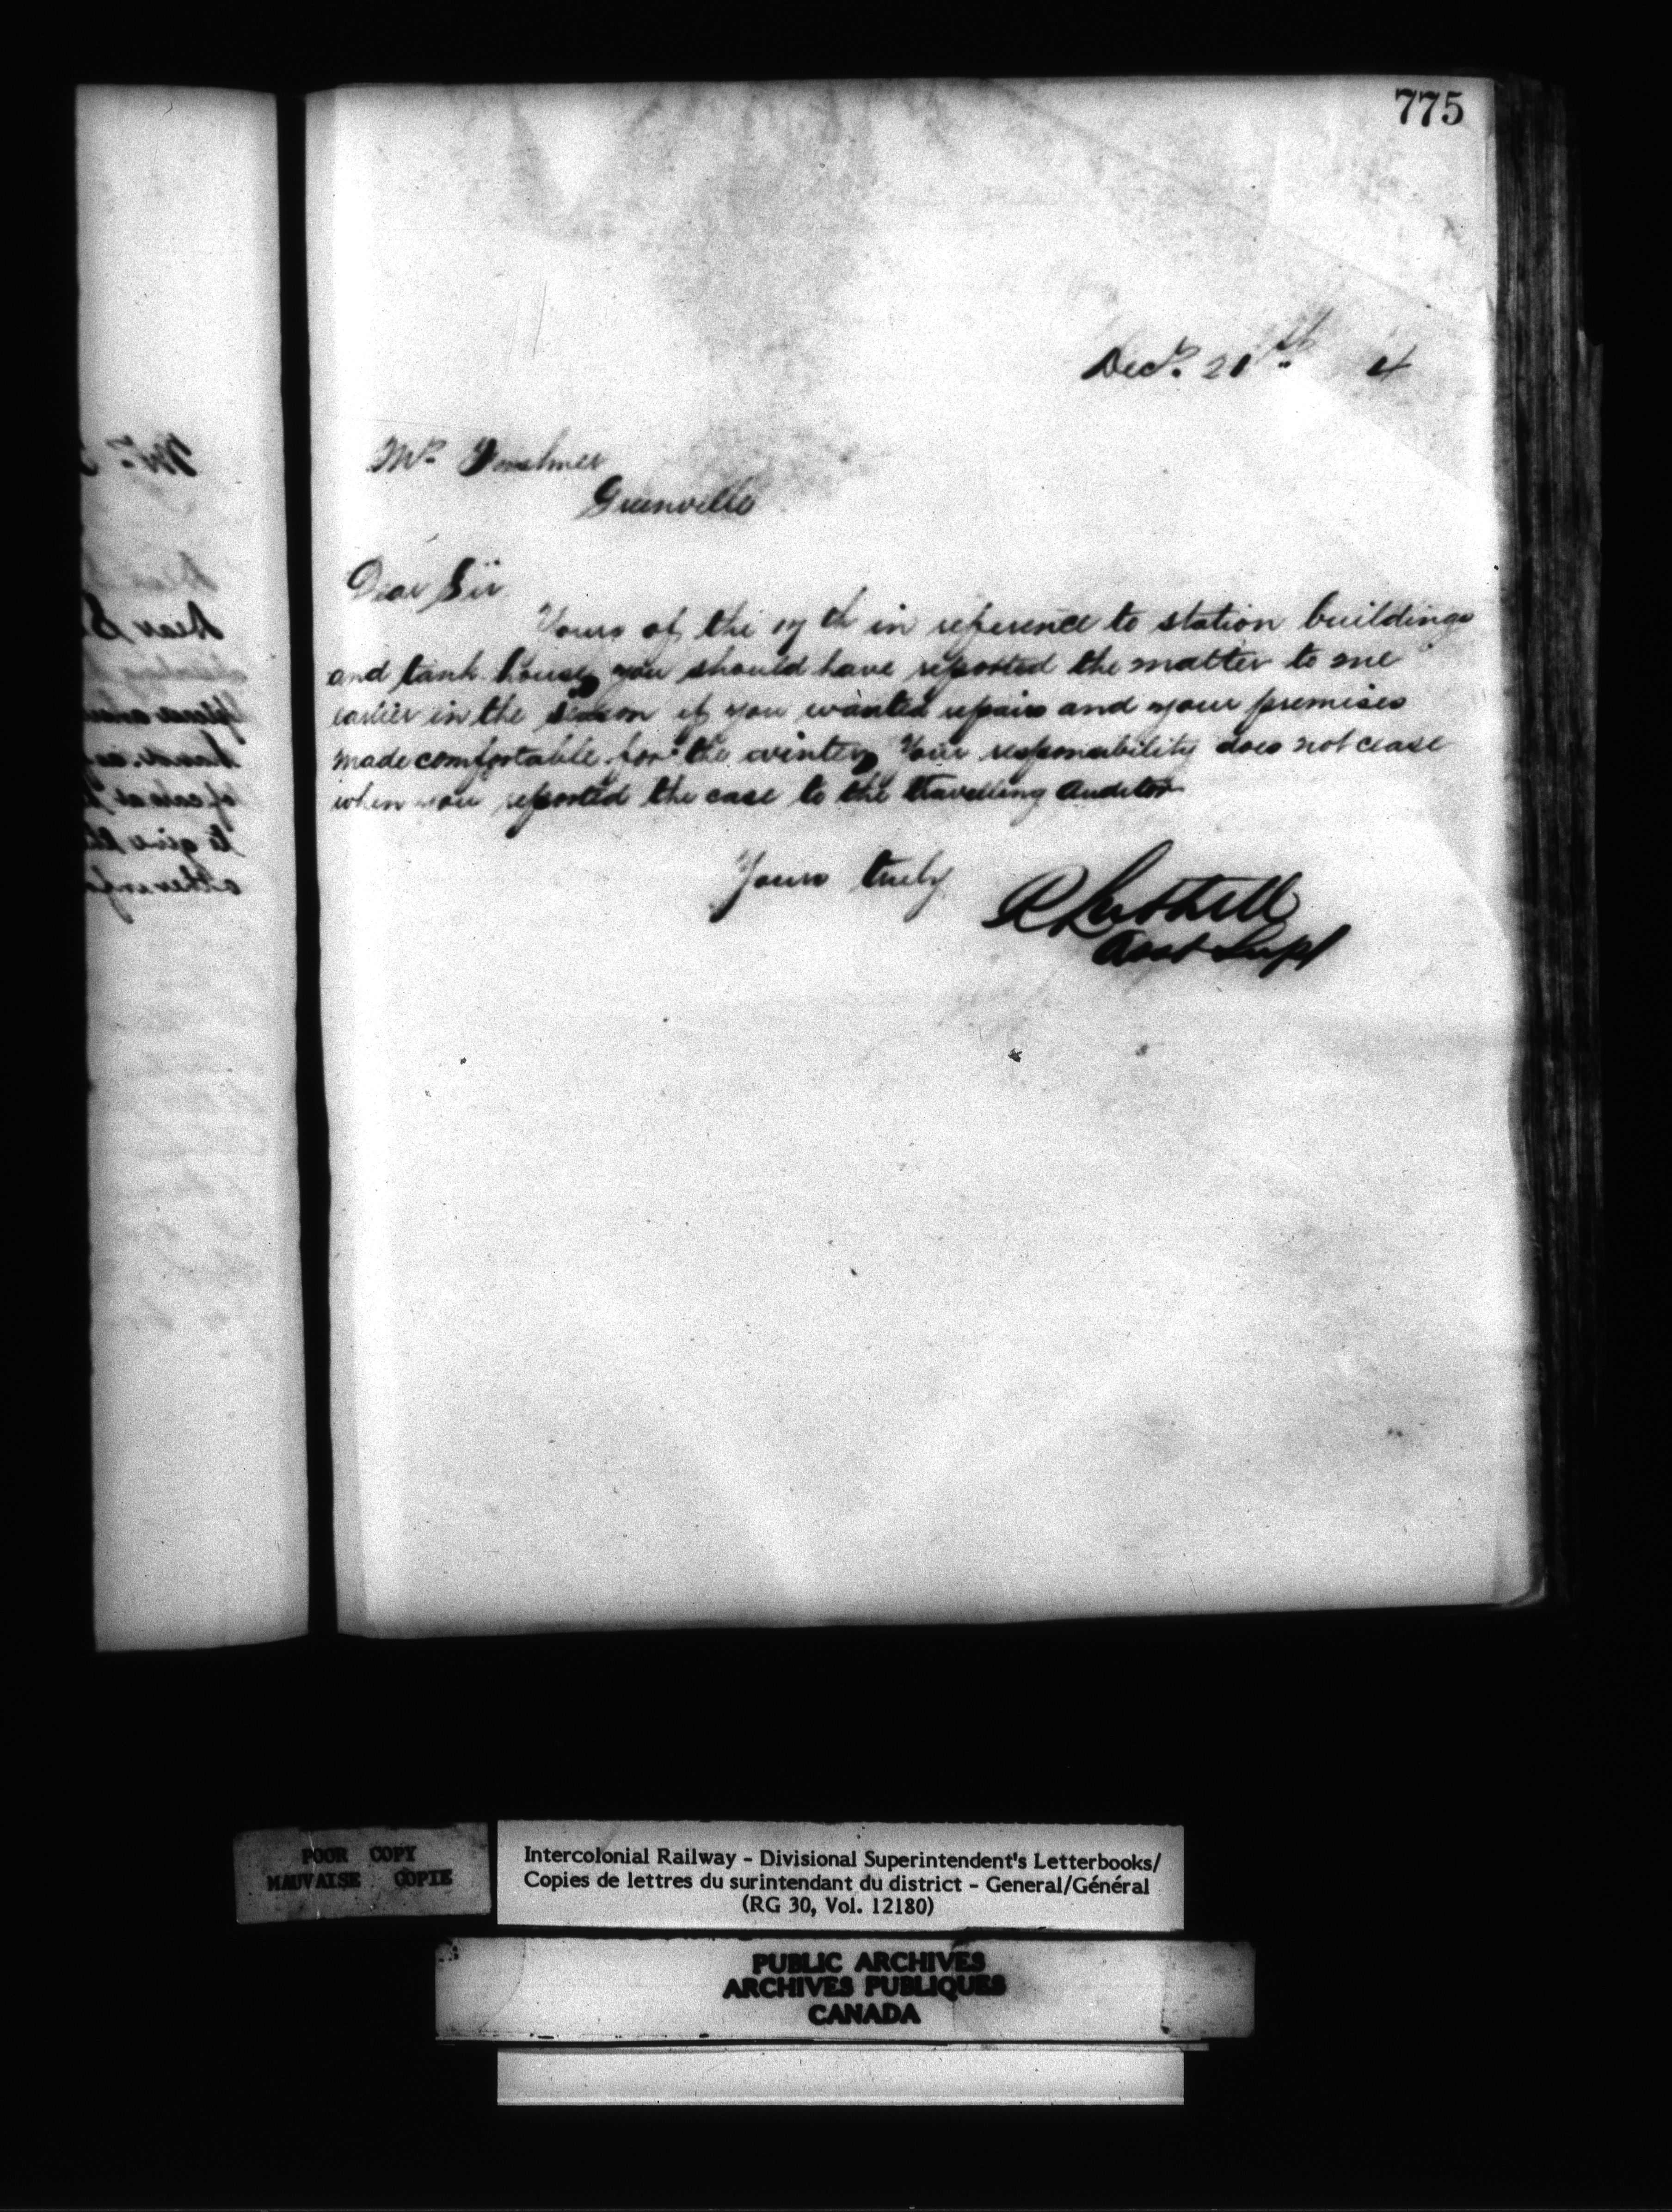 775
Decr. 21st 4
Mr.
Greenville
Dear Sir
Yours of the 17th in reference to station buildings
and tank house, you should have reported the matter to me
earlier in the season if you wanted repairs and your premises
made comfortable for the winter, Your responsibility does not cease
when you reported the case to the Travelling Auditor
Yours truly
R Luttrell
Asst Supt
Mr.
Dear S
to give th
POOR COPY
MAUVAISE COPIE
Intercolonial Railway - Divisional Superintendent's Letterbooks/
Copies de lettres du surintendant du district - General/Général
(RG 30, Vol. 12180)
PUBLIC ARCHIVES
ARCHIVES PUBLIQUES
CANADA